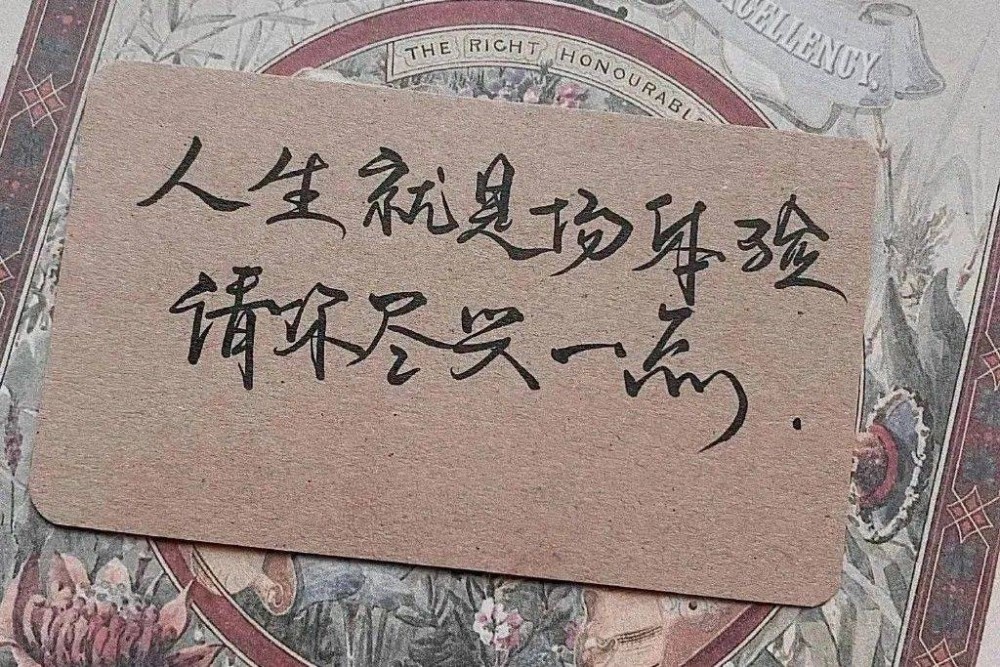 EXCELLENCY.
THE RIGHT HONOURABLE
人生就是场体验
请你尽兴一点.